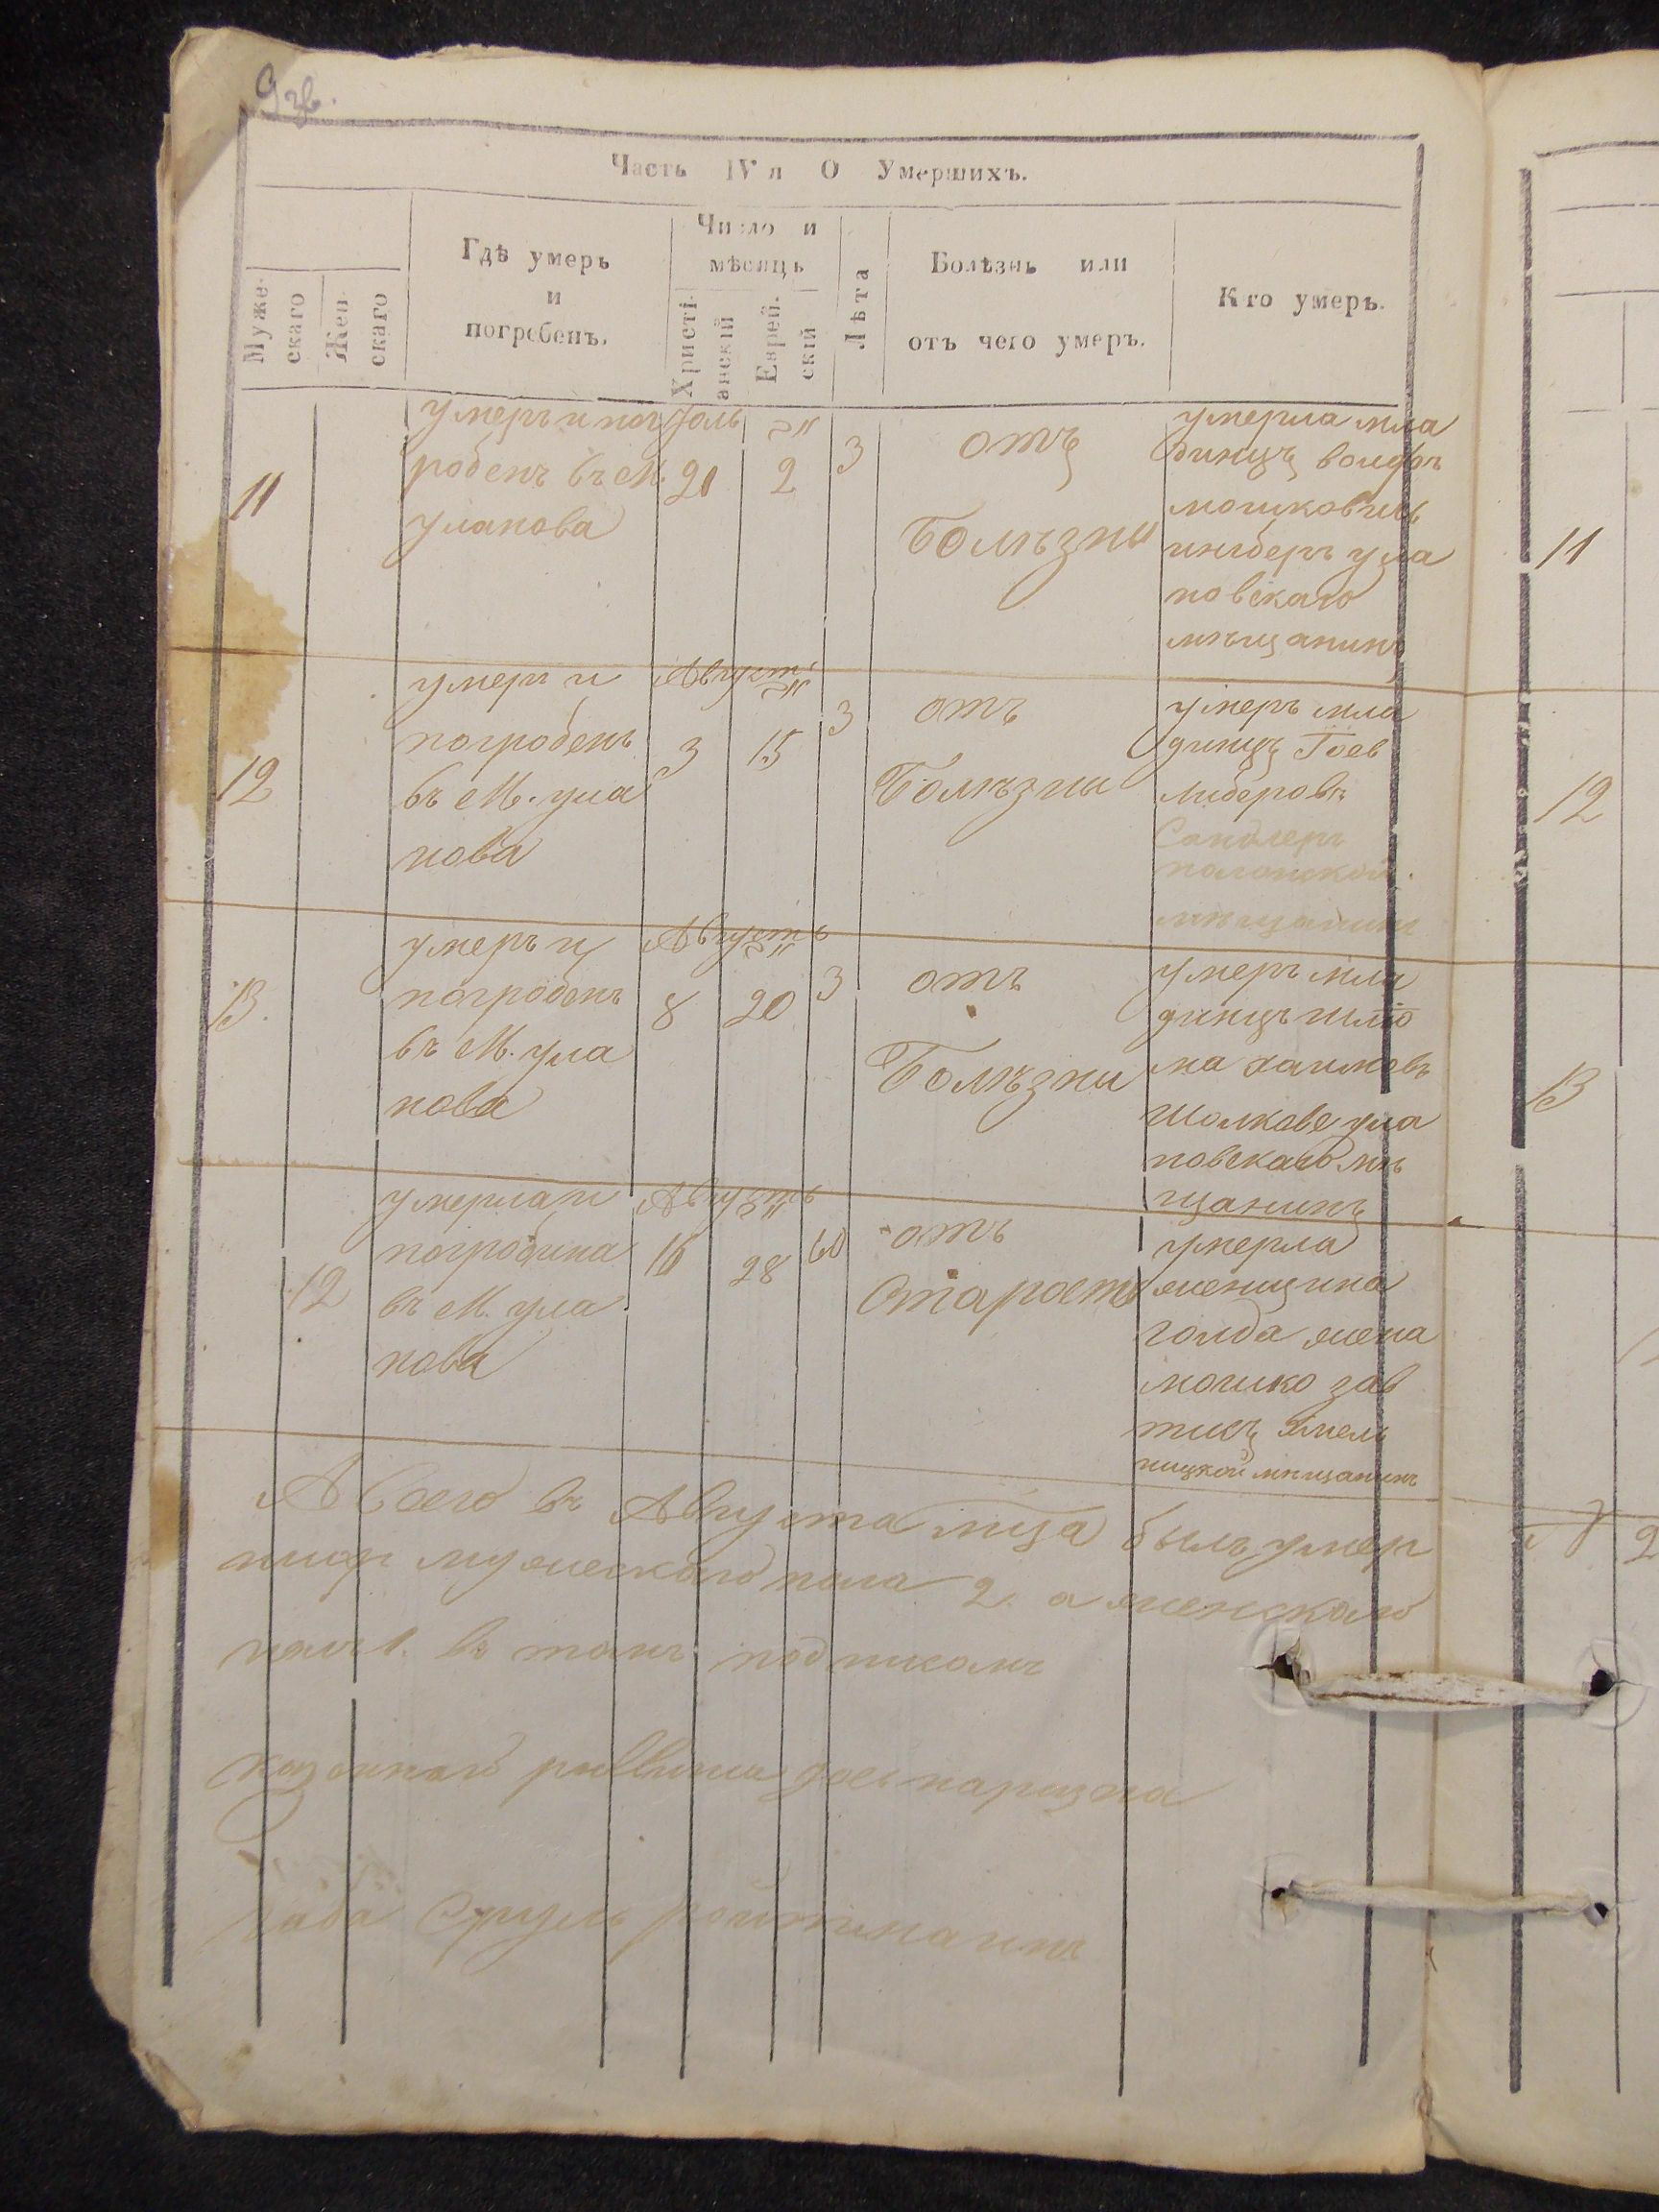 9 зв.
Часть IV я О Умершихъ.
Муже-
скаго
Жен-
скаго
Гдѣ умеръ
и
погребенъ.
Число и
мѣсяцъ
Христі-
анскій
Еврей-
скій
Лѣта
Болѣзнь или
отъ чего умеръ.
Кто умеръ.
11
умеръ и пог
робенъ въ М.
уланова
Іюль
20
2
3
отъ
Болѣзны
умерла мла
динцъ волфъ
мошковичъ
ингберъ ула
новскаго
мѣщанинъ
12
умеръ и
погробенъ
въ М. ула
нова
Августъ
3
15
3
отъ
Болѣзны
умеръ мла
динцъ
либеровъ
Сандлеръ
полонской
мѣщанинъ
13
умеръ и
погробенъ
въ М. ула
нова
Августъ
8
20
3
отъ
Болѣзны
умеръ мла
динцъ шлио
ма хаимовъ
ула
новскаго мѣ
щанинъ
12
умерла и
погробина
въ М. ула
нова
Августъ
16
28
60
отъ
Старость
умерла
женщина
голда жена
мошко зав
хмель
ницкой мѣщанинъ
А Всего въ Августа мца былъ умер
мужескаго пола 2. а женскаго
1. въ томъ подписомъ
казенной раввина
Сруль ройтманъ
11
12
13
2